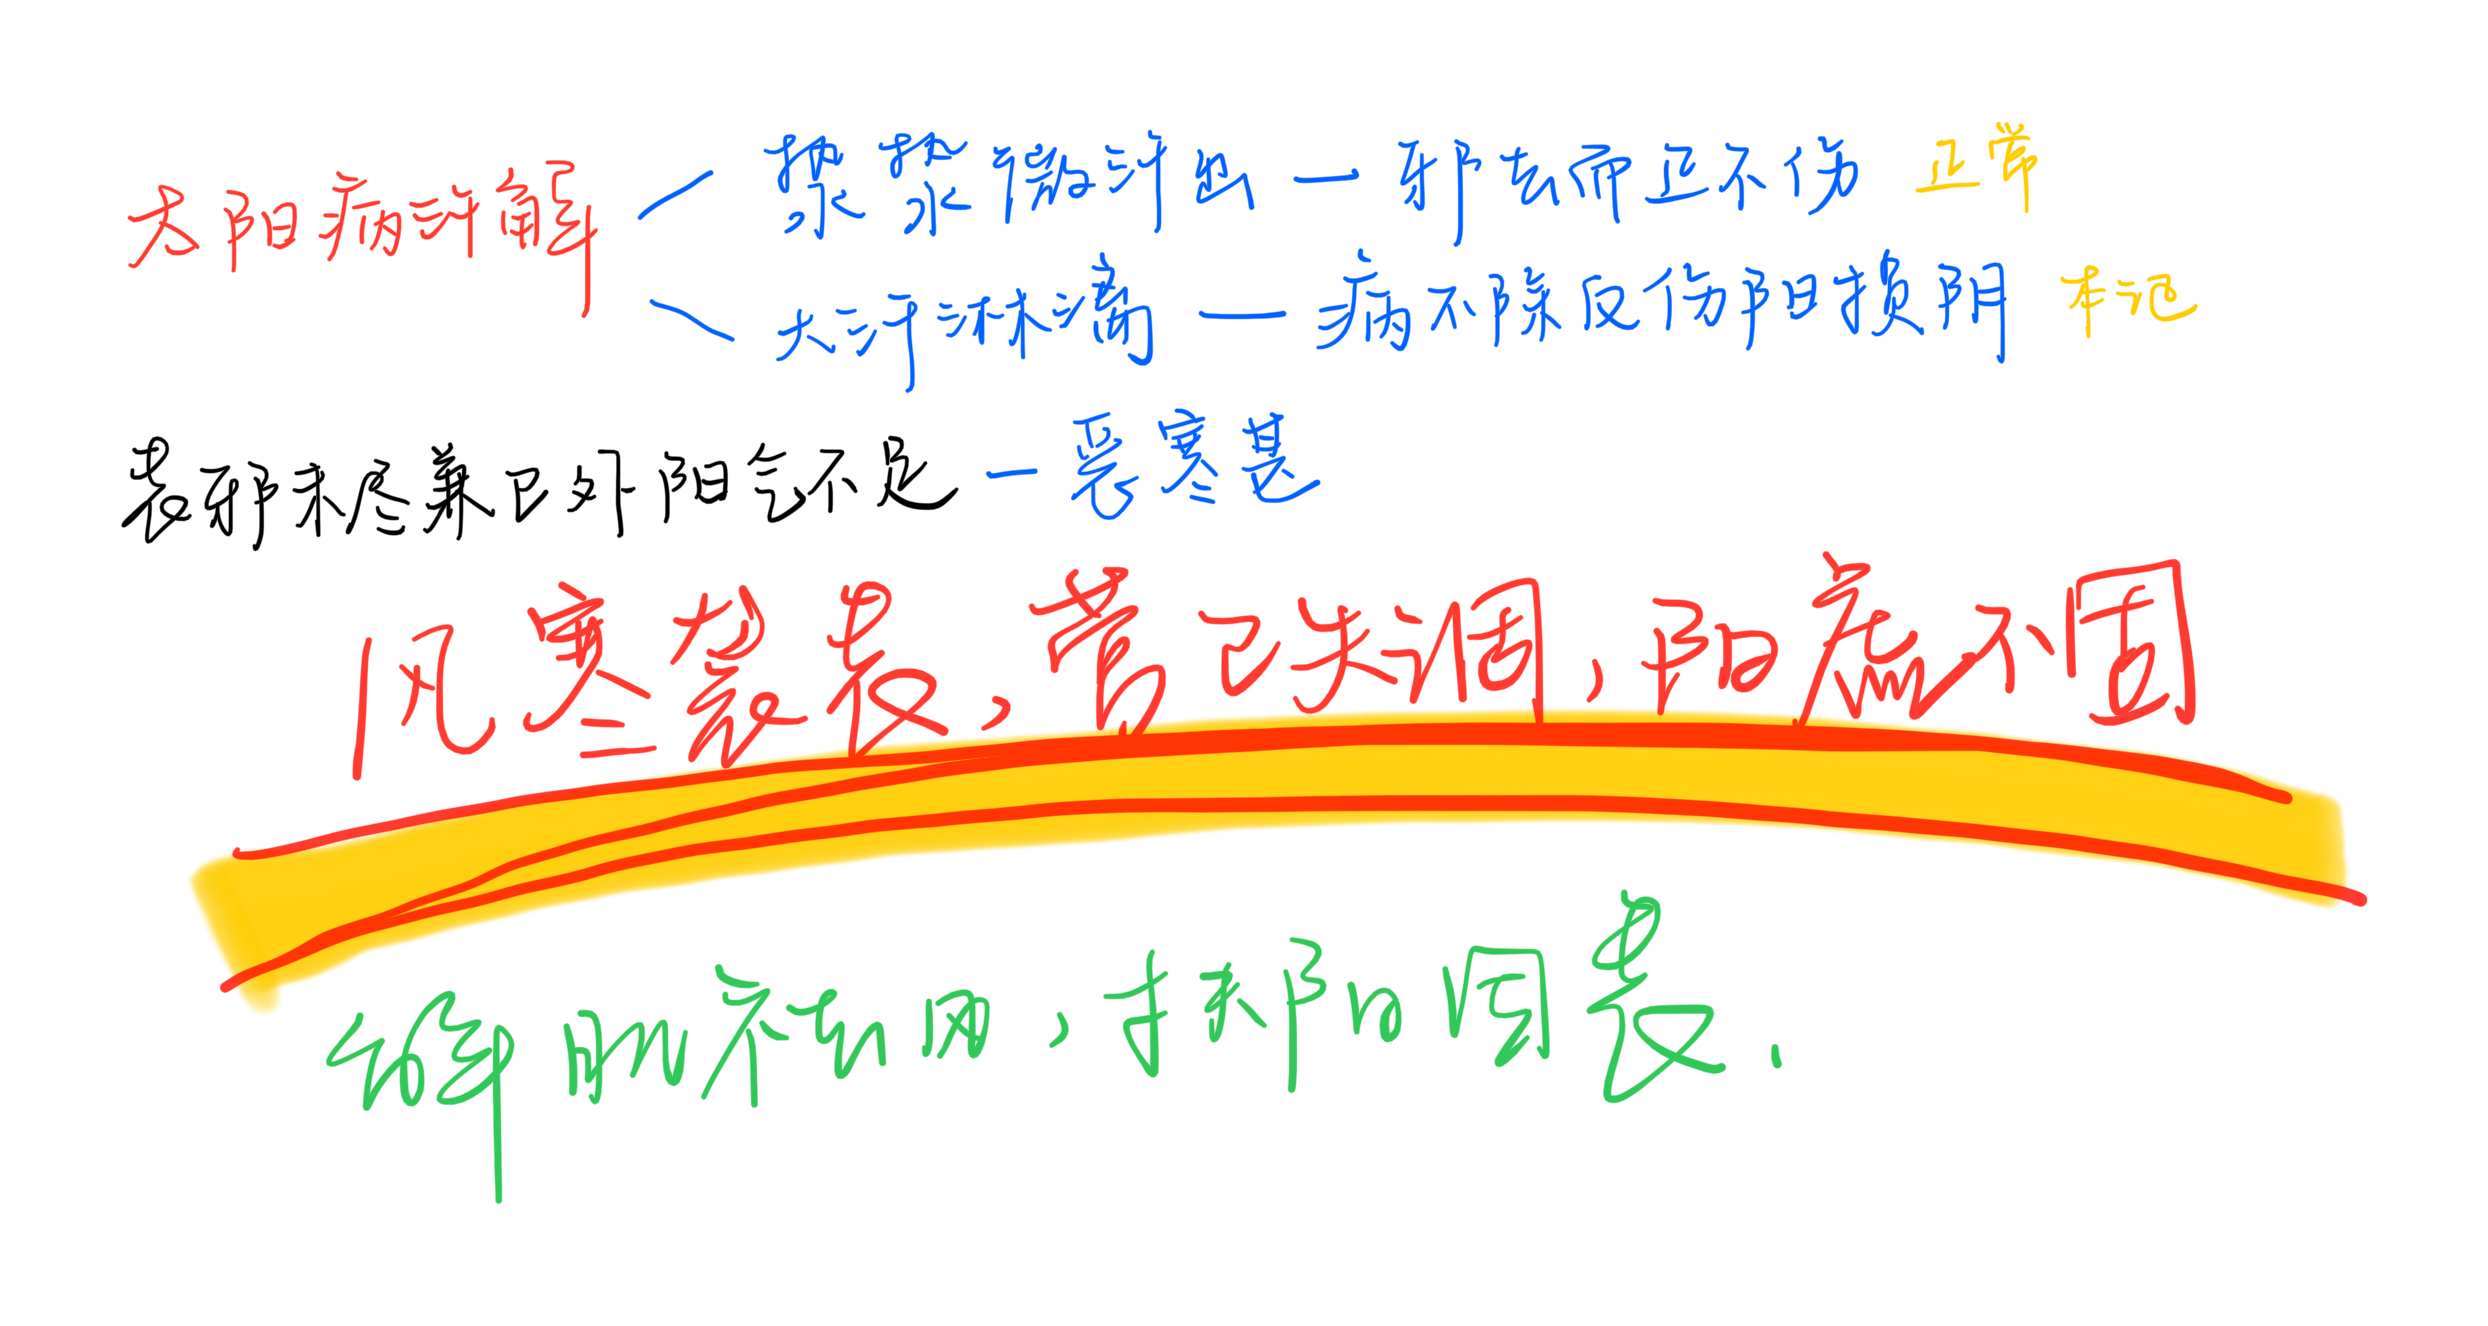 太阳病汗解
漐漐微汗出 — 邪去而正不伤 正常
大汗淋漓 — 病不除反伤阳损阴 本证
表邪未尽兼卫外阳气不足 — 恶寒甚
风寒袭表，营卫失调，阳虚不固
解肌祛风，扶阳固表.